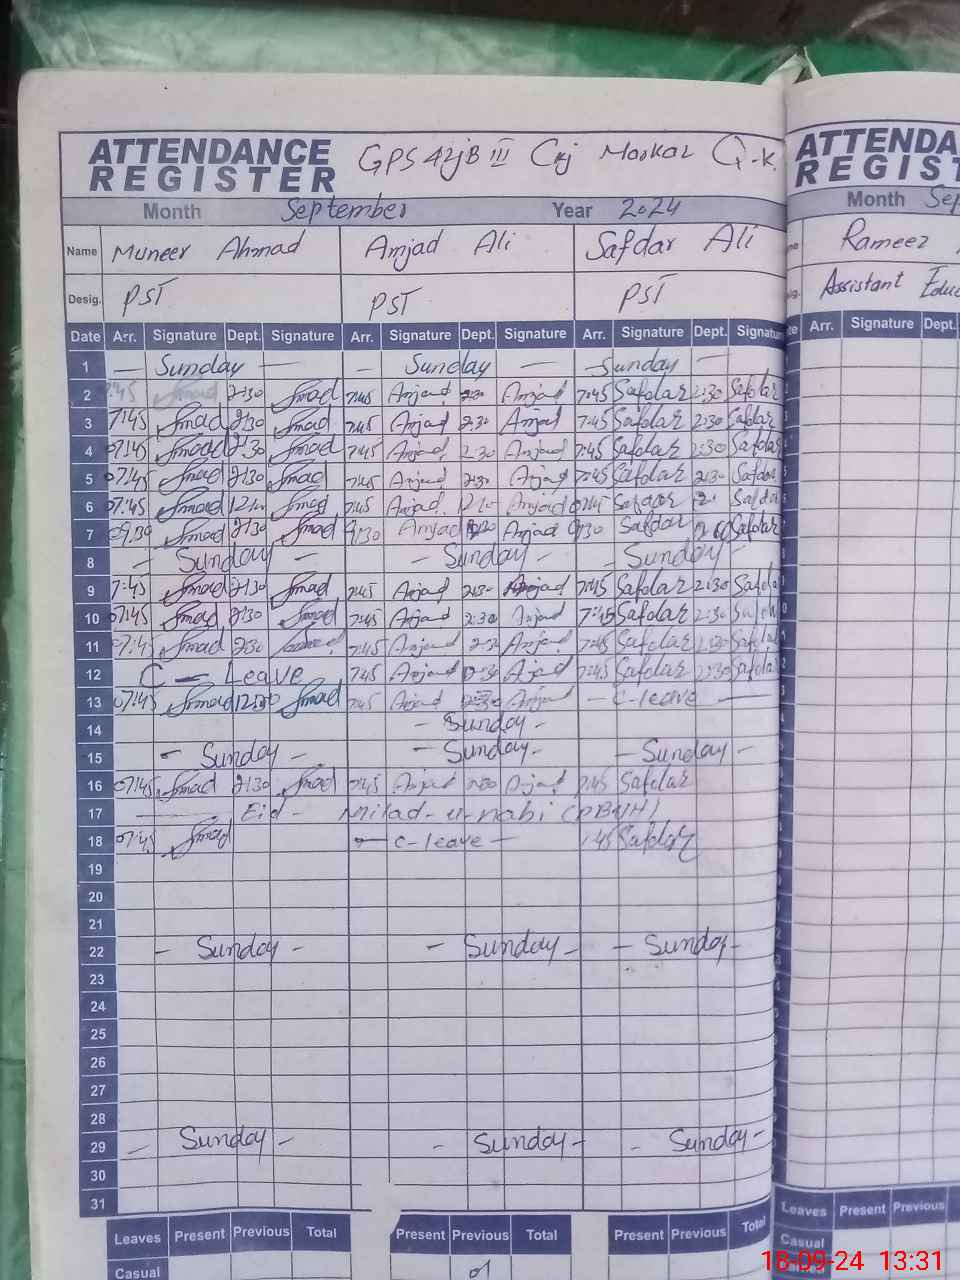 ATTENDANCE REGISTER GPS 42jB III Moskar Q.K.
Month September Year 2024
Name Muneer Ahmad Amjad Ali Safdar Ali
Desig. PST PST PST
Date Arr. Signature Dept. Signature Arr. Signature Dept. Signature Arr. Signature Dept. Signatur
1 — Sunday — - Sunday — - Sunday —
2 2:30 Smad 7:45 Amjad 2:30 Amjad 7:45 Safdar 2:30 Safdar
3 7:45 Smad 2:30 Smad 7:45 Amjad 2:30 Amjad 7:45 Safdar 2:30 Safdar
4 07:45 Smad 2:30 Smad 7:45 Amjad 2:30 Amjad 7:45 Safdar 2:30 Safdar
5 07:45 Smad 2:30 Smad 7:45 Amjad 2:30 Amjad 7:45 Safdar 2:30 Safdar
6 07:45 Smad Smad 7:45 Amjad Amjad Safdar Safda
7 09:30 Smad 2:30 Smad 9:30 Amjad Amjad 9:30 Safdar Safdar
8 - Sunday — - Sunday - - Sunday -
9 7:45 Smad 2:30 Smad 7:45 Amjad 2:30 Amjad 7:45 Safdar 2:30 Safda
10 07:45 Smad 2:30 Smad 7:45 Amjad 2:30 Amjad 7:45 Safdar 2:30 Safda
11 07:45 Smad 2:30 7:45 Amjad 2:30 Amjad 7:45 Safdar 2:30 Safda
12 C — Leave 7:45 Amjad Amjad 7:45 Safdar 2:30 Safda
13 07:45 Smad Smad 7:45 Amjad Amjad — C-leave —
14 - Sunday -
15 - Sunday - - Sunday - - Sunday -
16 07:45 Smad 2:30 Smad 7:45 Amjad Amjad 7:45 Safdar
17 Eid - Milad-u-nabi (PBUH)
18 07:45 Smad — C-leave — 7:45 Safdar
19
20
21
22 - Sunday - - Sunday - - Sunday -
23
24
25
26
27
28
29 - Sunday - - Sunday - - Sunday -
30
31
Leaves Present Previous Total Present Previous Total Present Previous Total
Casual 01
ATTENDA
REGIST
Month Sep
Rameez
Assistant Educ
Arr. Signature Dept.
Leaves Present Previous
Casual
18-09-24 13:31